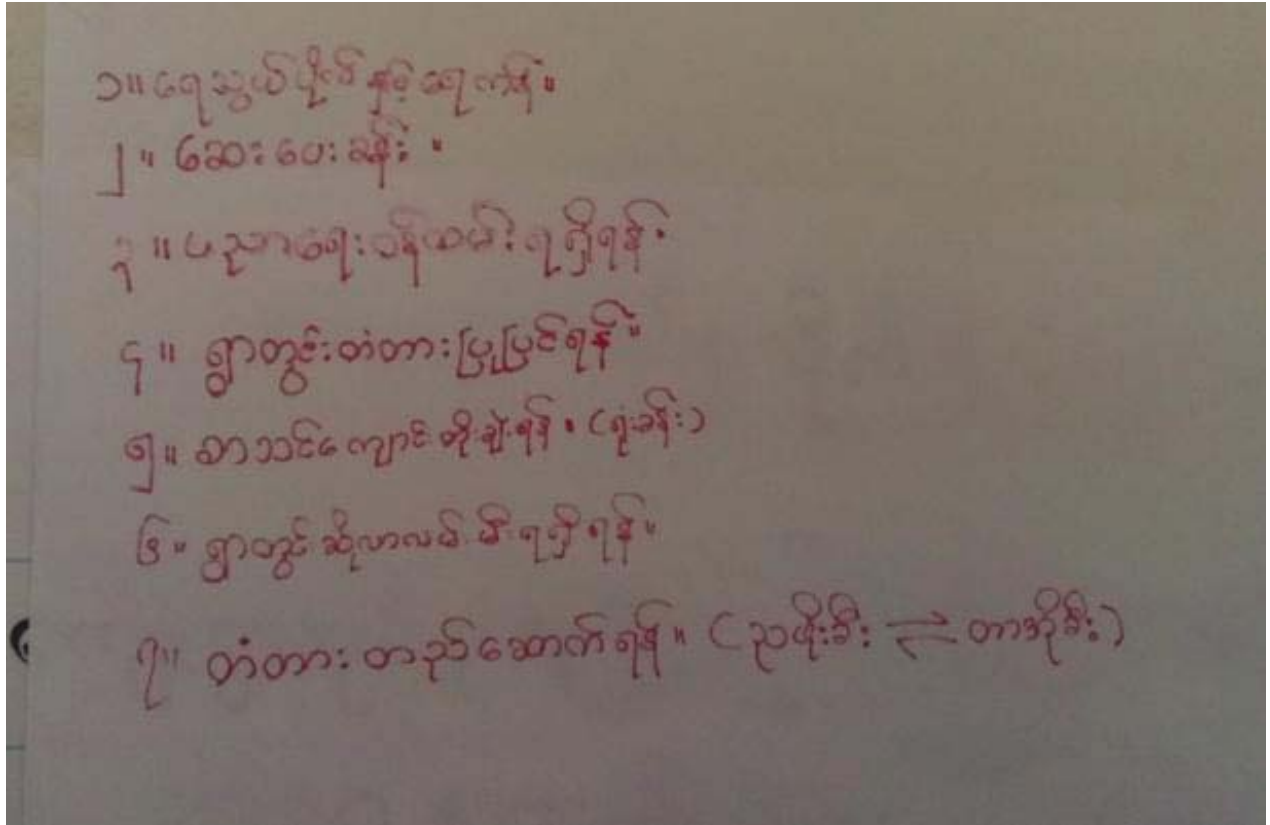 ၁။ ရေသွယ်ပိုက်နှင့်ရေကန်။
၂။ ဆေးပေးခန်း။
၃။ ပညာရေးဝန်ထမ်းရရှိရန်။
၄။ ရွာတွင်းတံတားပြုပြင်ရန်။
၅။ စာသင်ကျောင်းတိုးချဲ့ရန်။ (ရုံးခန်း)
၆။ ရွာတွင်းဆိုလာလမ်းမီးရရှိရန်။
၇။ တံတားတည်ဆောက်ရန်။ (ညဖိုးခီး ⇌ တာအိုခီး)